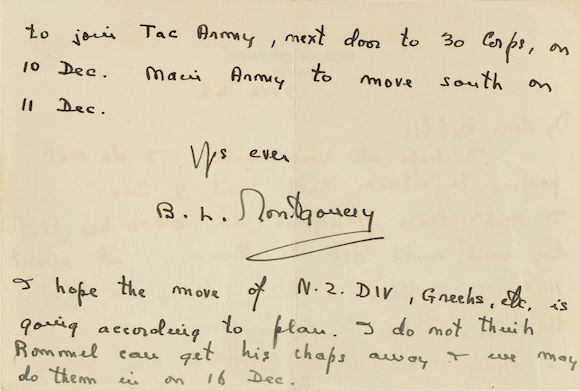 to join Tac Army, next door to 30 Corps, on
10 Dec. Main Army to move south on
11 Dec.
Yrs ever
B. L. Montgomery
I hope the move of N.Z. DIV, Greeks, etc. is
going according to plan. I do not think
Rommel can get his chaps away & we may
do them in on 16 Dec.